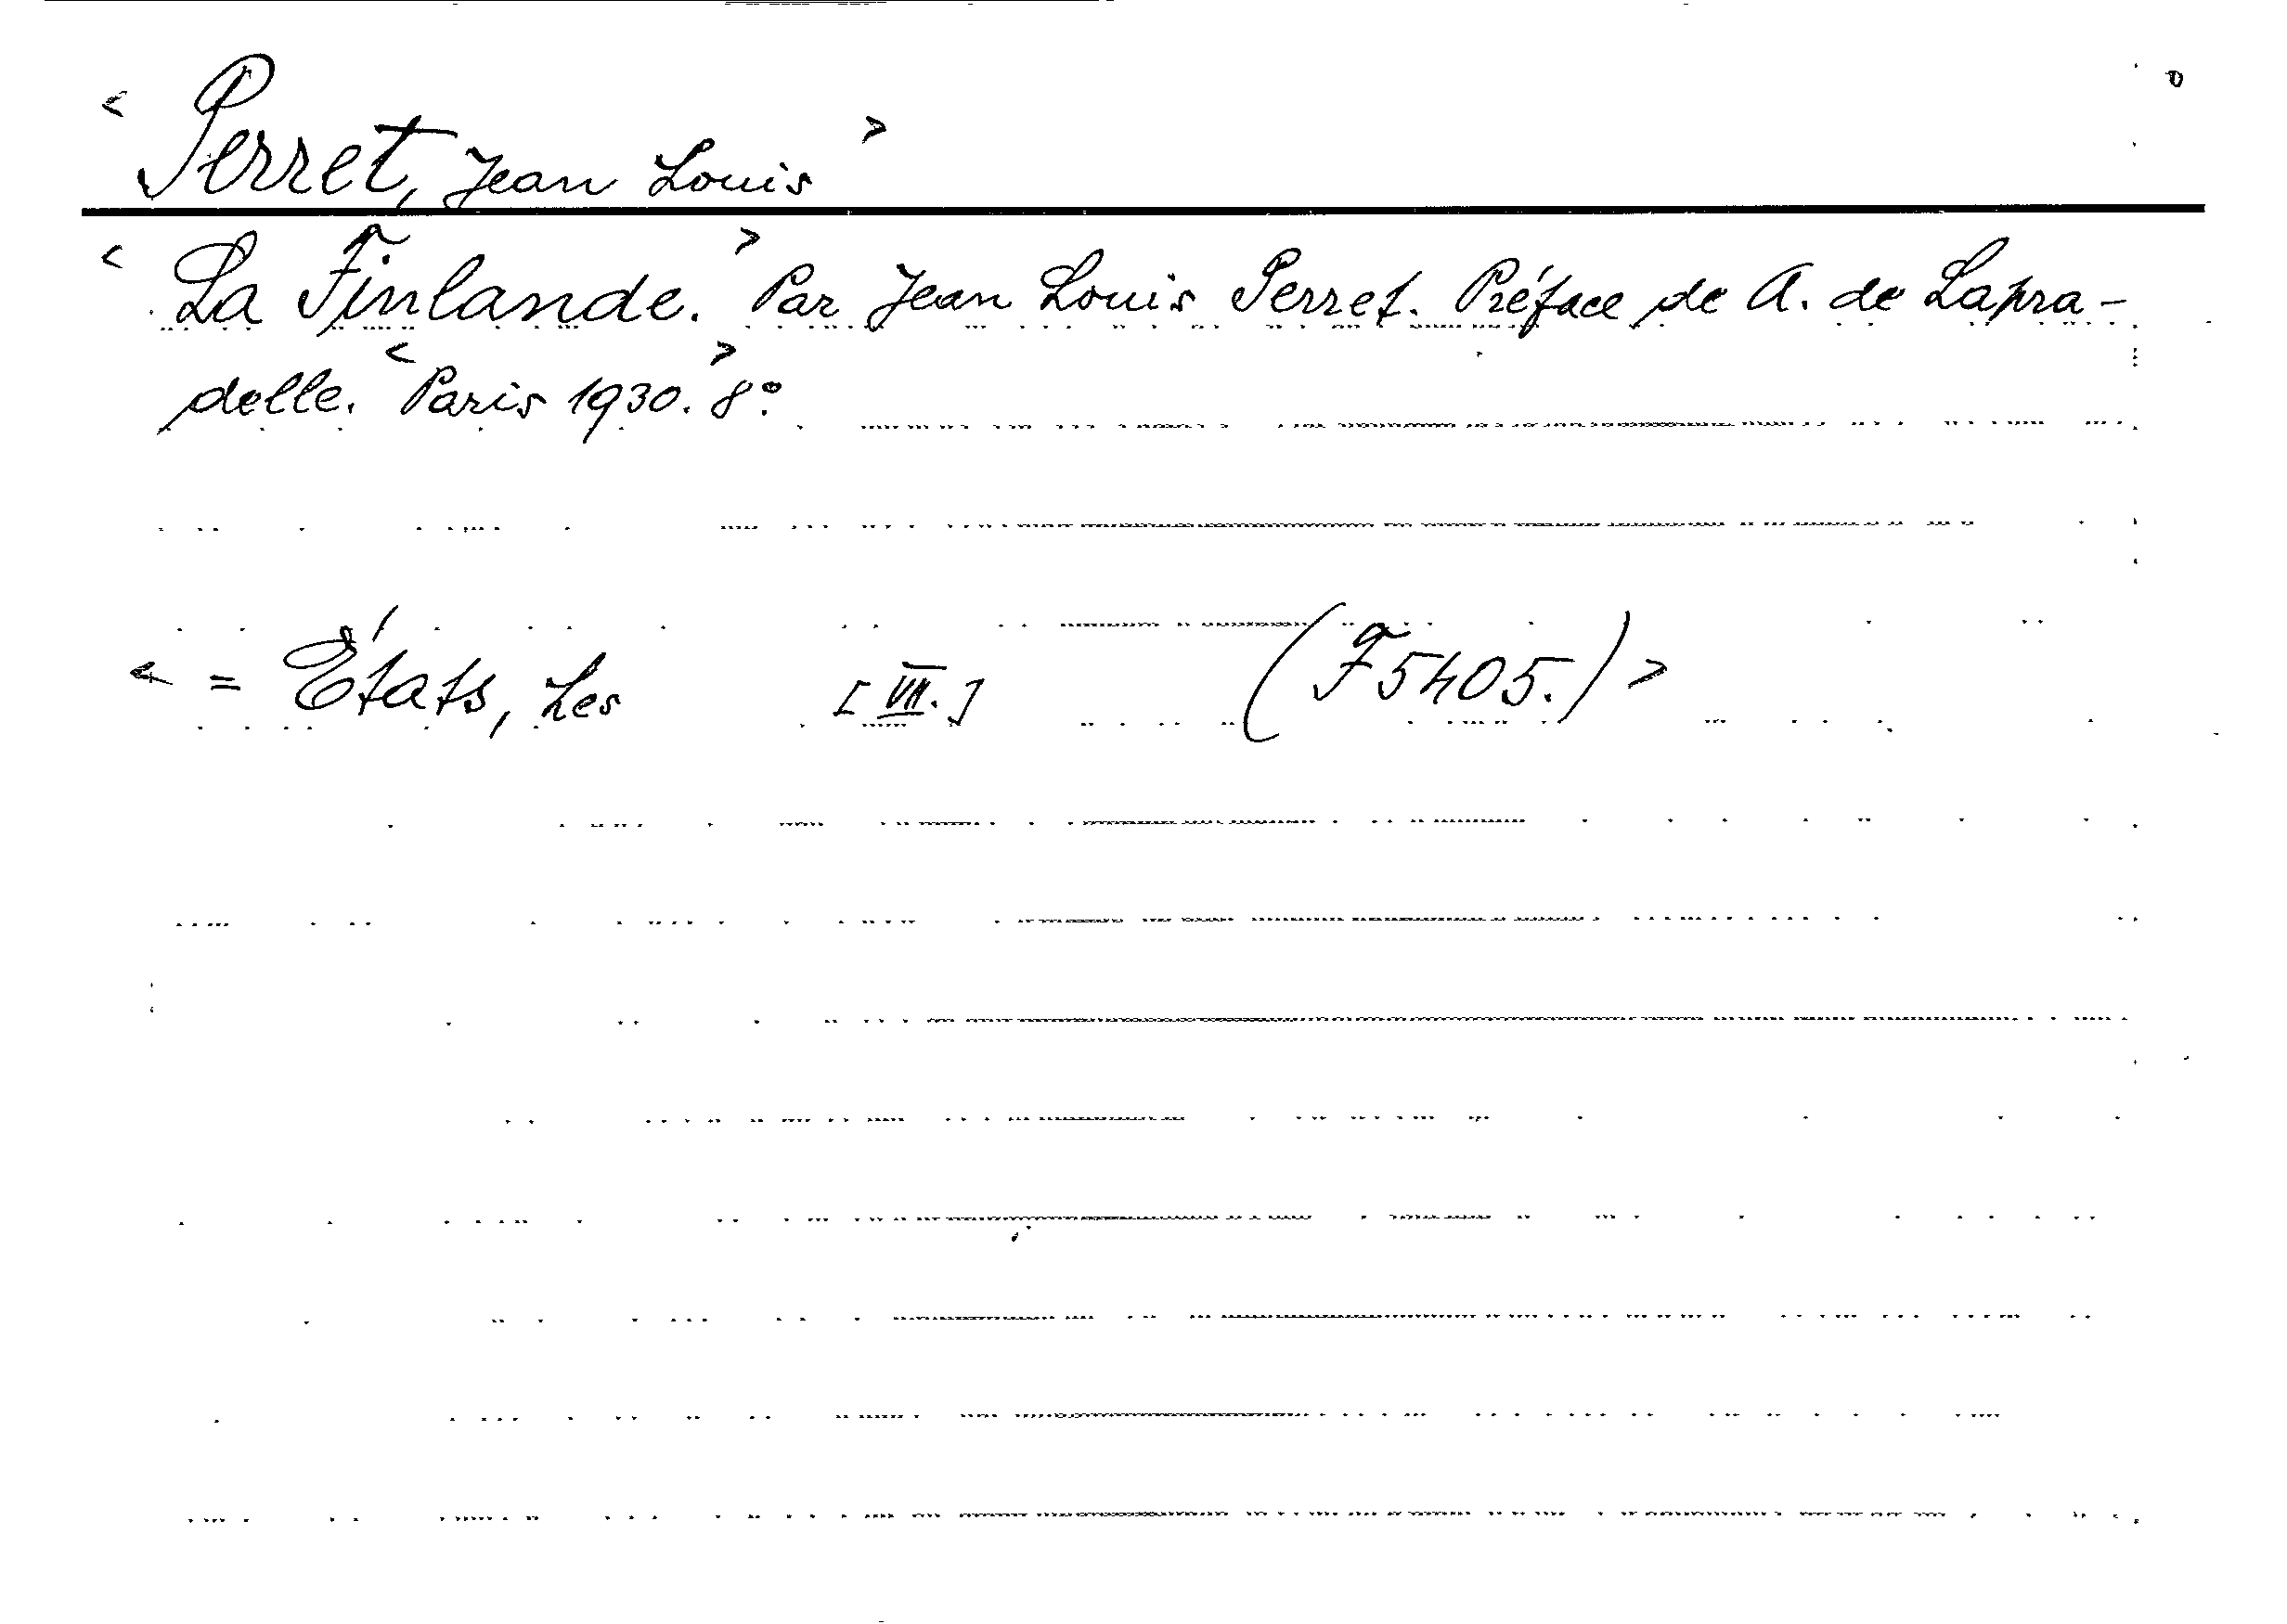 < Perret, Jean Louis >
< La Finlande. > Par Jean Louis Perret. Préface de A. de Lapra-
delle. < Paris 1930. > 8°.
< = États, Les [VII.] (F5405.) >